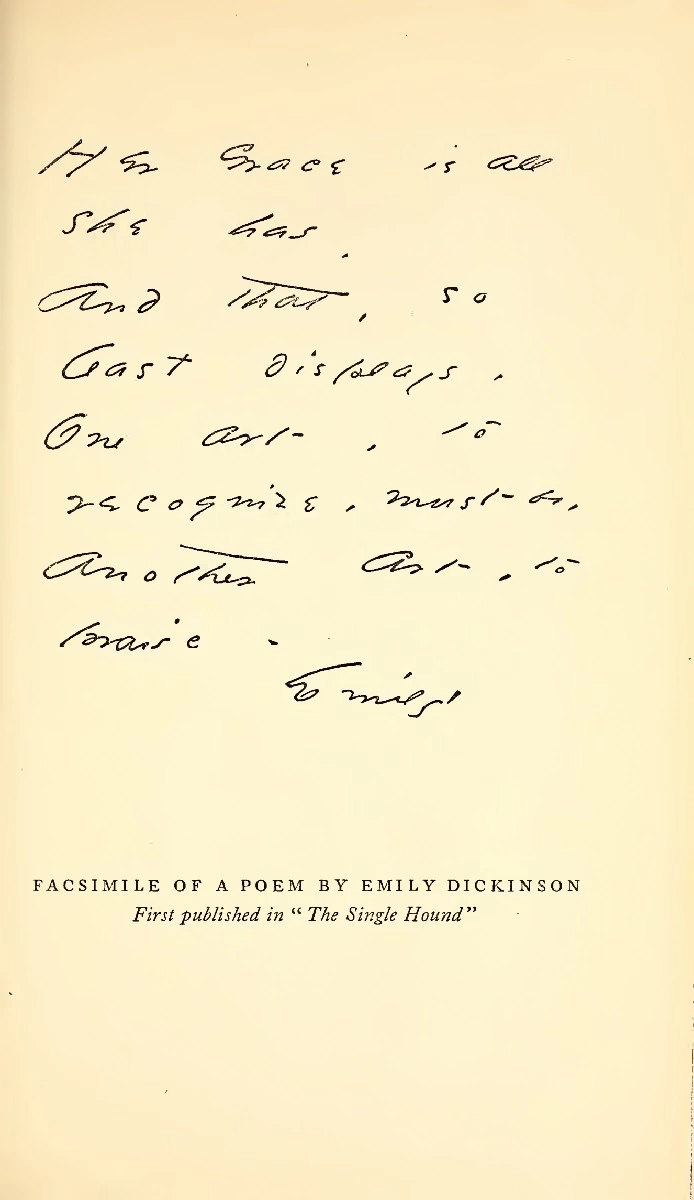 Her Grace is all
she has.
And that, so
least displays,
One art, to
recognize, must be,
Another Art, to
praise -
Emily
FACSIMILE OF A POEM BY EMILY DICKINSON
First published in “The Single Hound”